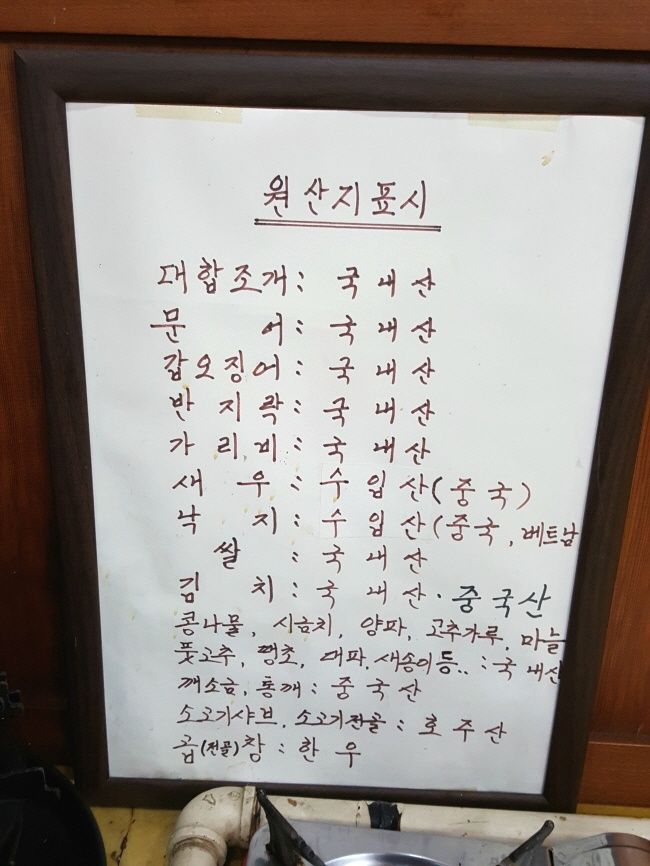 원산지표시
대합조개: 국내산
문어: 국내산
갑오징어: 국내산
반지락: 국내산
가리비: 국내산
새우: 수입산(중국)
낙지: 수입산(중국, 베트남
쌀: 국내산
김치: 국내산·중국산
콩나물, 시금치, 양파, 고추가루, 마늘
풋고추, 땡초, 대파, 새송이등..:국내산
깨소금, 통깨: 중국산
소고기샤브, 소고기전골: 호주산
곱(전골)창: 한우